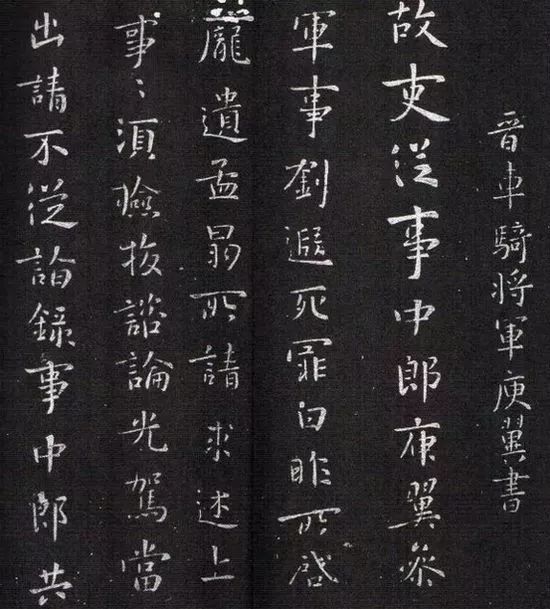 晉車騎將軍庾翼書
故吏從事中郎庾翼參
軍事劉遐死罪白昨所啓
龐遺孟昻所請求述上
事〻須檢校諮論光駕當
出請不從論錄事中郎共